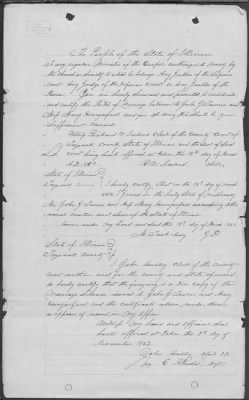 The People of the State of Illinois
To any regular Minister of the Gospel authorized to marry by
the church or society to which he belongs Any Justice of the Supreme
Court Any Judge of the Inferior Court or any Justice of the
Peace. You are hereby licensed and permitted to celebrate
and certify the Rites of Marriage between Mr John G. Turner and
Miss Mary Hungerford and for so doing this shall be your
sufficient Warrant
Witness Richard W. Ireland Clerk of the County Court of
Tazewell County State of Illinois and the Seal of said
Court being hereto affixed at Pekin this 18th day of March
A.D. 1852
Clerk
State of Illinois
Tazewell County
I hereby certify that on the 18th day of March
1852 I joined in the holy State of Matrimony
Mr John G. Turner and Miss Mary Hungerford according to the
usual custom and laws of the State of Illinois
Given under my hand and seal this 18th day of March 1852
J.P.
State of Illinois
Tazewell County
I John Clerk of the County
Court within and for the County and State aforesaid
do hereby certify that the foregoing is a true copy of the
Marriage License issued to John G. Turner and Mary
Hungerford and the certificate
as appears of record in my Office
Witness my hand and official Seal
hereto affixed at Pekin this 3d day of
November 1862
John
Depty